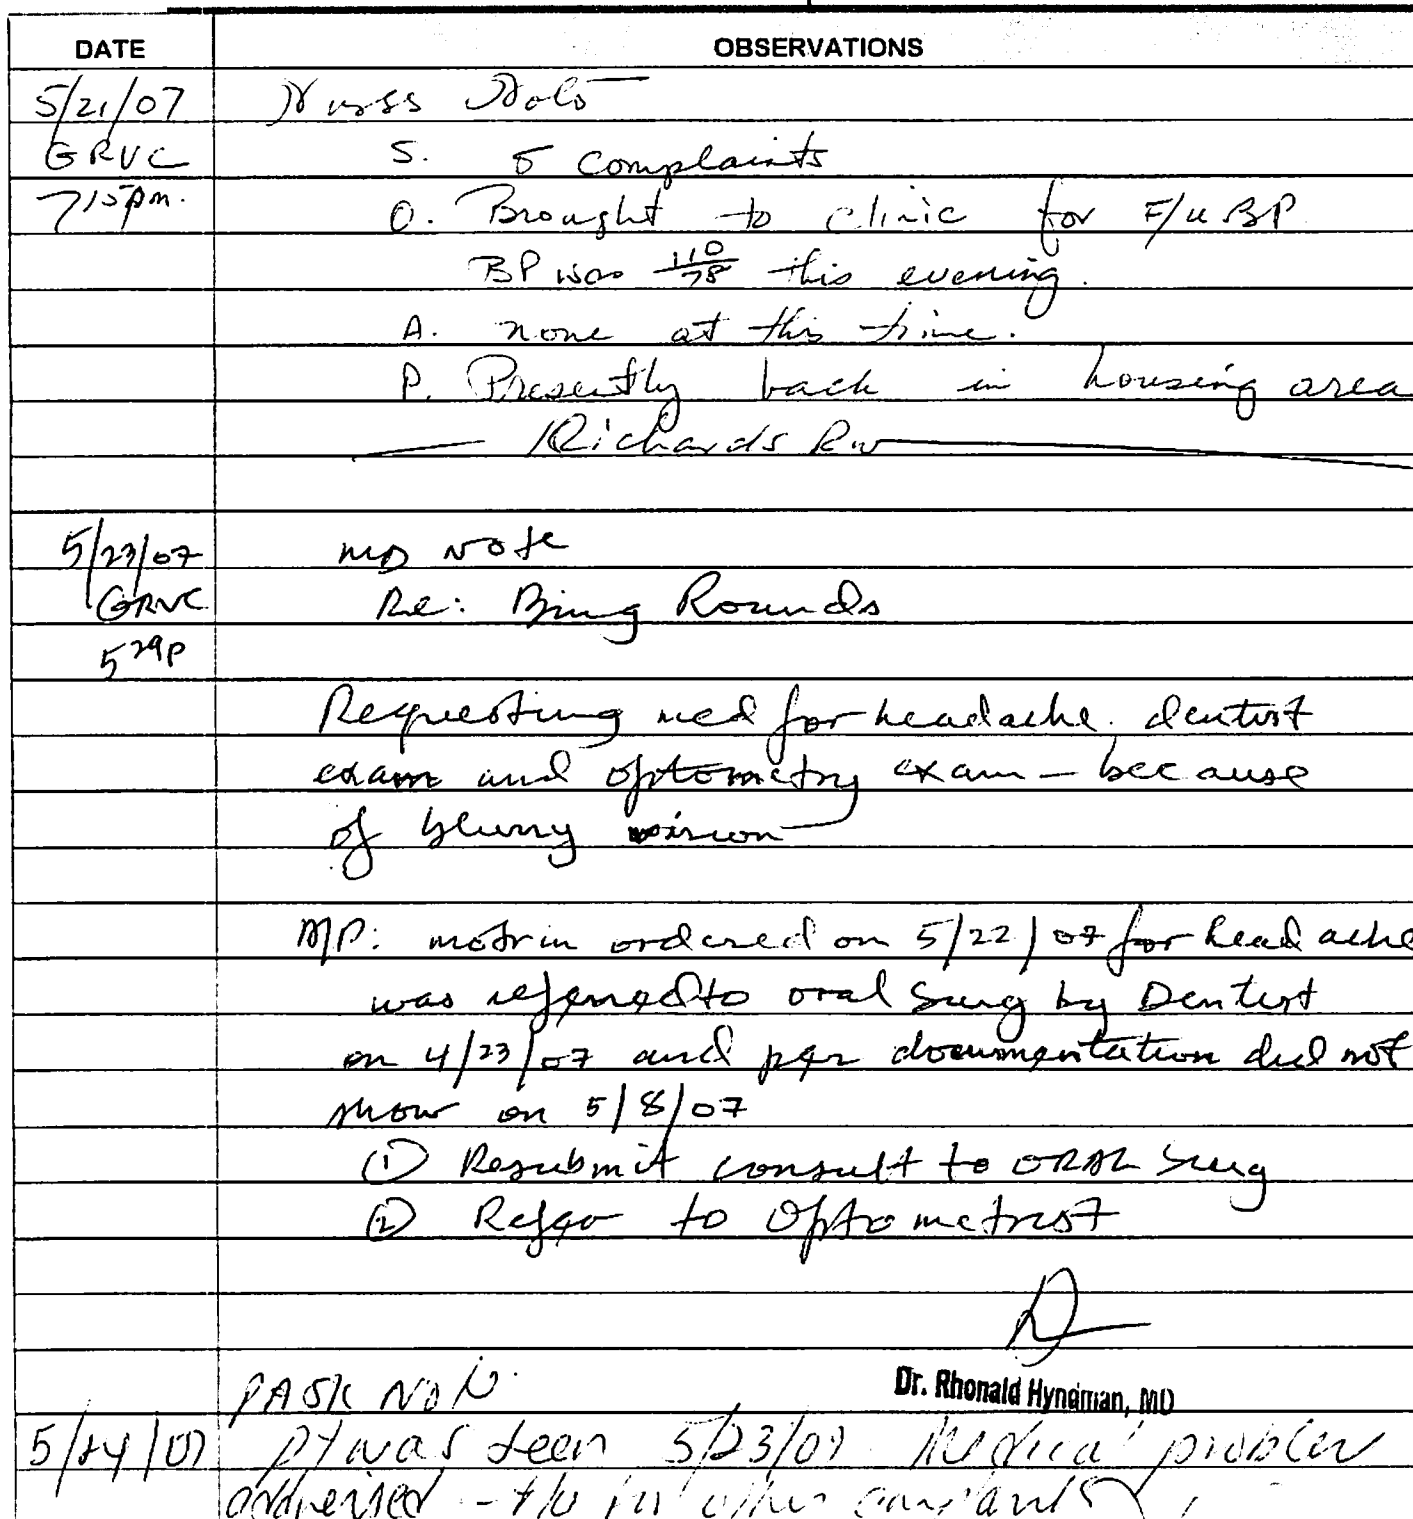 DATE OBSERVATIONS
5/21/07 Nurse Note
GRVC S. ō complaints
715pm. O. Brought to clinic for F/u BP
BP was 110/78 this evening.
A. none at this time.
P. Presently back in housing area
Richards RN
5/23/07 MD Note
GRVC Re: Bing Rounds
5 29P
Requesting med for headache. dentist
exam and optometry exam - because
of blurry vision
A/P: motrin ordered on 5/22/07 for headache
was referred to oral surg by Dentist
on 4/23/07 and per documentation did not
show on 5/8/07
① Resubmit consult to ORAL Surg
② Refer to Optometrist
Dr. Rhonald Hyndman, MD
5/24/07 pt was seen 5/23/07 Medical problem
addressed - for other